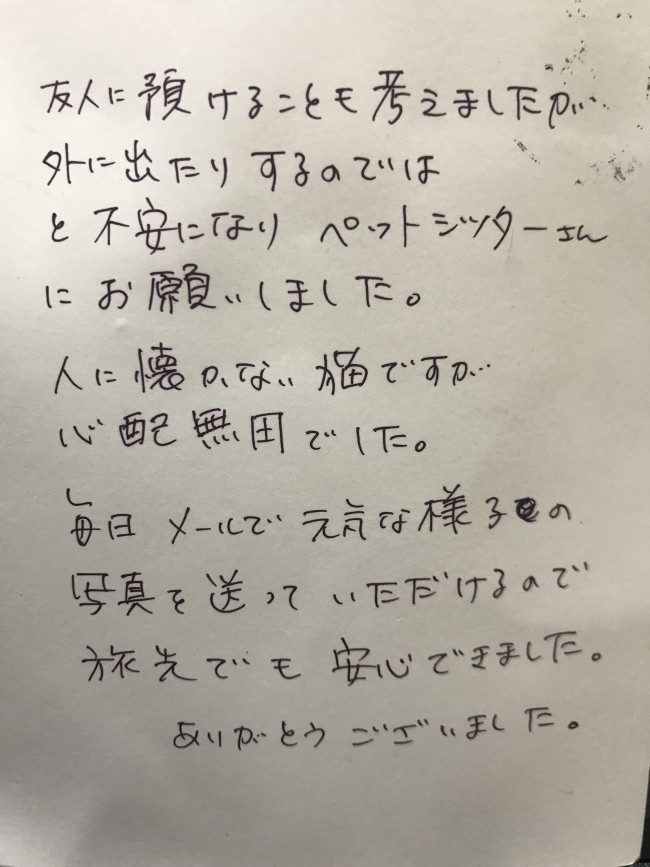 友人に預けることも考えましたが
外に出たりするのでは
と不安になり ペットシッターさん
にお願いしました。
人に懐かない猫ですが
心配無用でした。
毎日メールで元気な様子の
写真を送っていただけるので
旅先でも安心できました。
ありがとうございました。